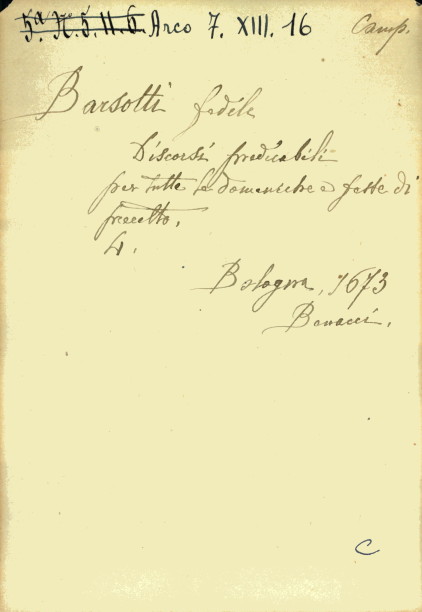 5ª. N. 5. 11. 6. Arco 7. XIII. 16 Camp.
Barsotti fedele
Discorsi predicabili
per tutte le domeniche e feste di
precetto.
4.
Bologna, 1673
Benacci.
C